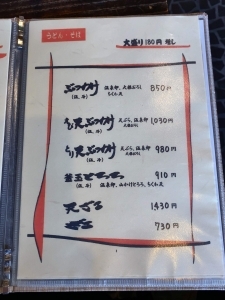 うどん・そば
大盛り180円増し
ぶっかけ 850円
(温・冷) 温泉卵、大根おろし
ちくわ天
天ぶっかけ 天ぷら、温泉卵 1,030円
(温・冷)
とり天ぶっかけ 980円
(温・冷)
釜玉 910円
(温・冷) 温泉卵、山かけとろろ、ちくわ天
天ざる 1,430円
ざる 730円
1